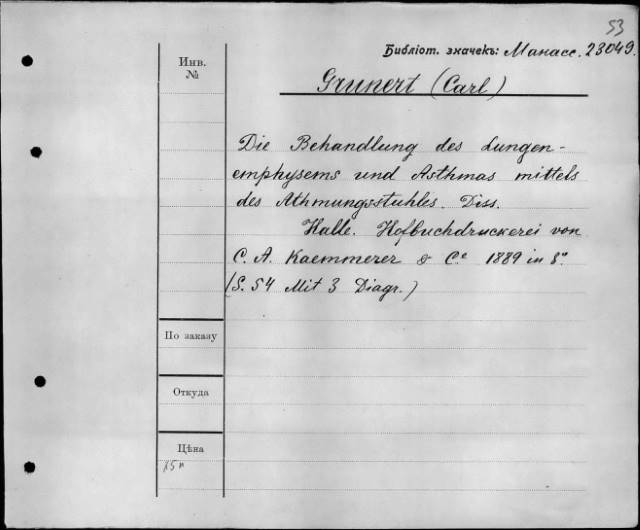 53
Библіот. значекъ: Манасс. 23049.
Инв.
№
Grunert (Carl)
Die Behandlung des Lungen-
emphysems und Asthmas mittels
des Athmungsstuhles. Diss.
Halle. Hofbuchdruckerei von
C. A. Kaemmerer & Cº 1889 in 8º
(S. 54 Mit 3 Diagr.)
По заказу
Откуда
Цѣна